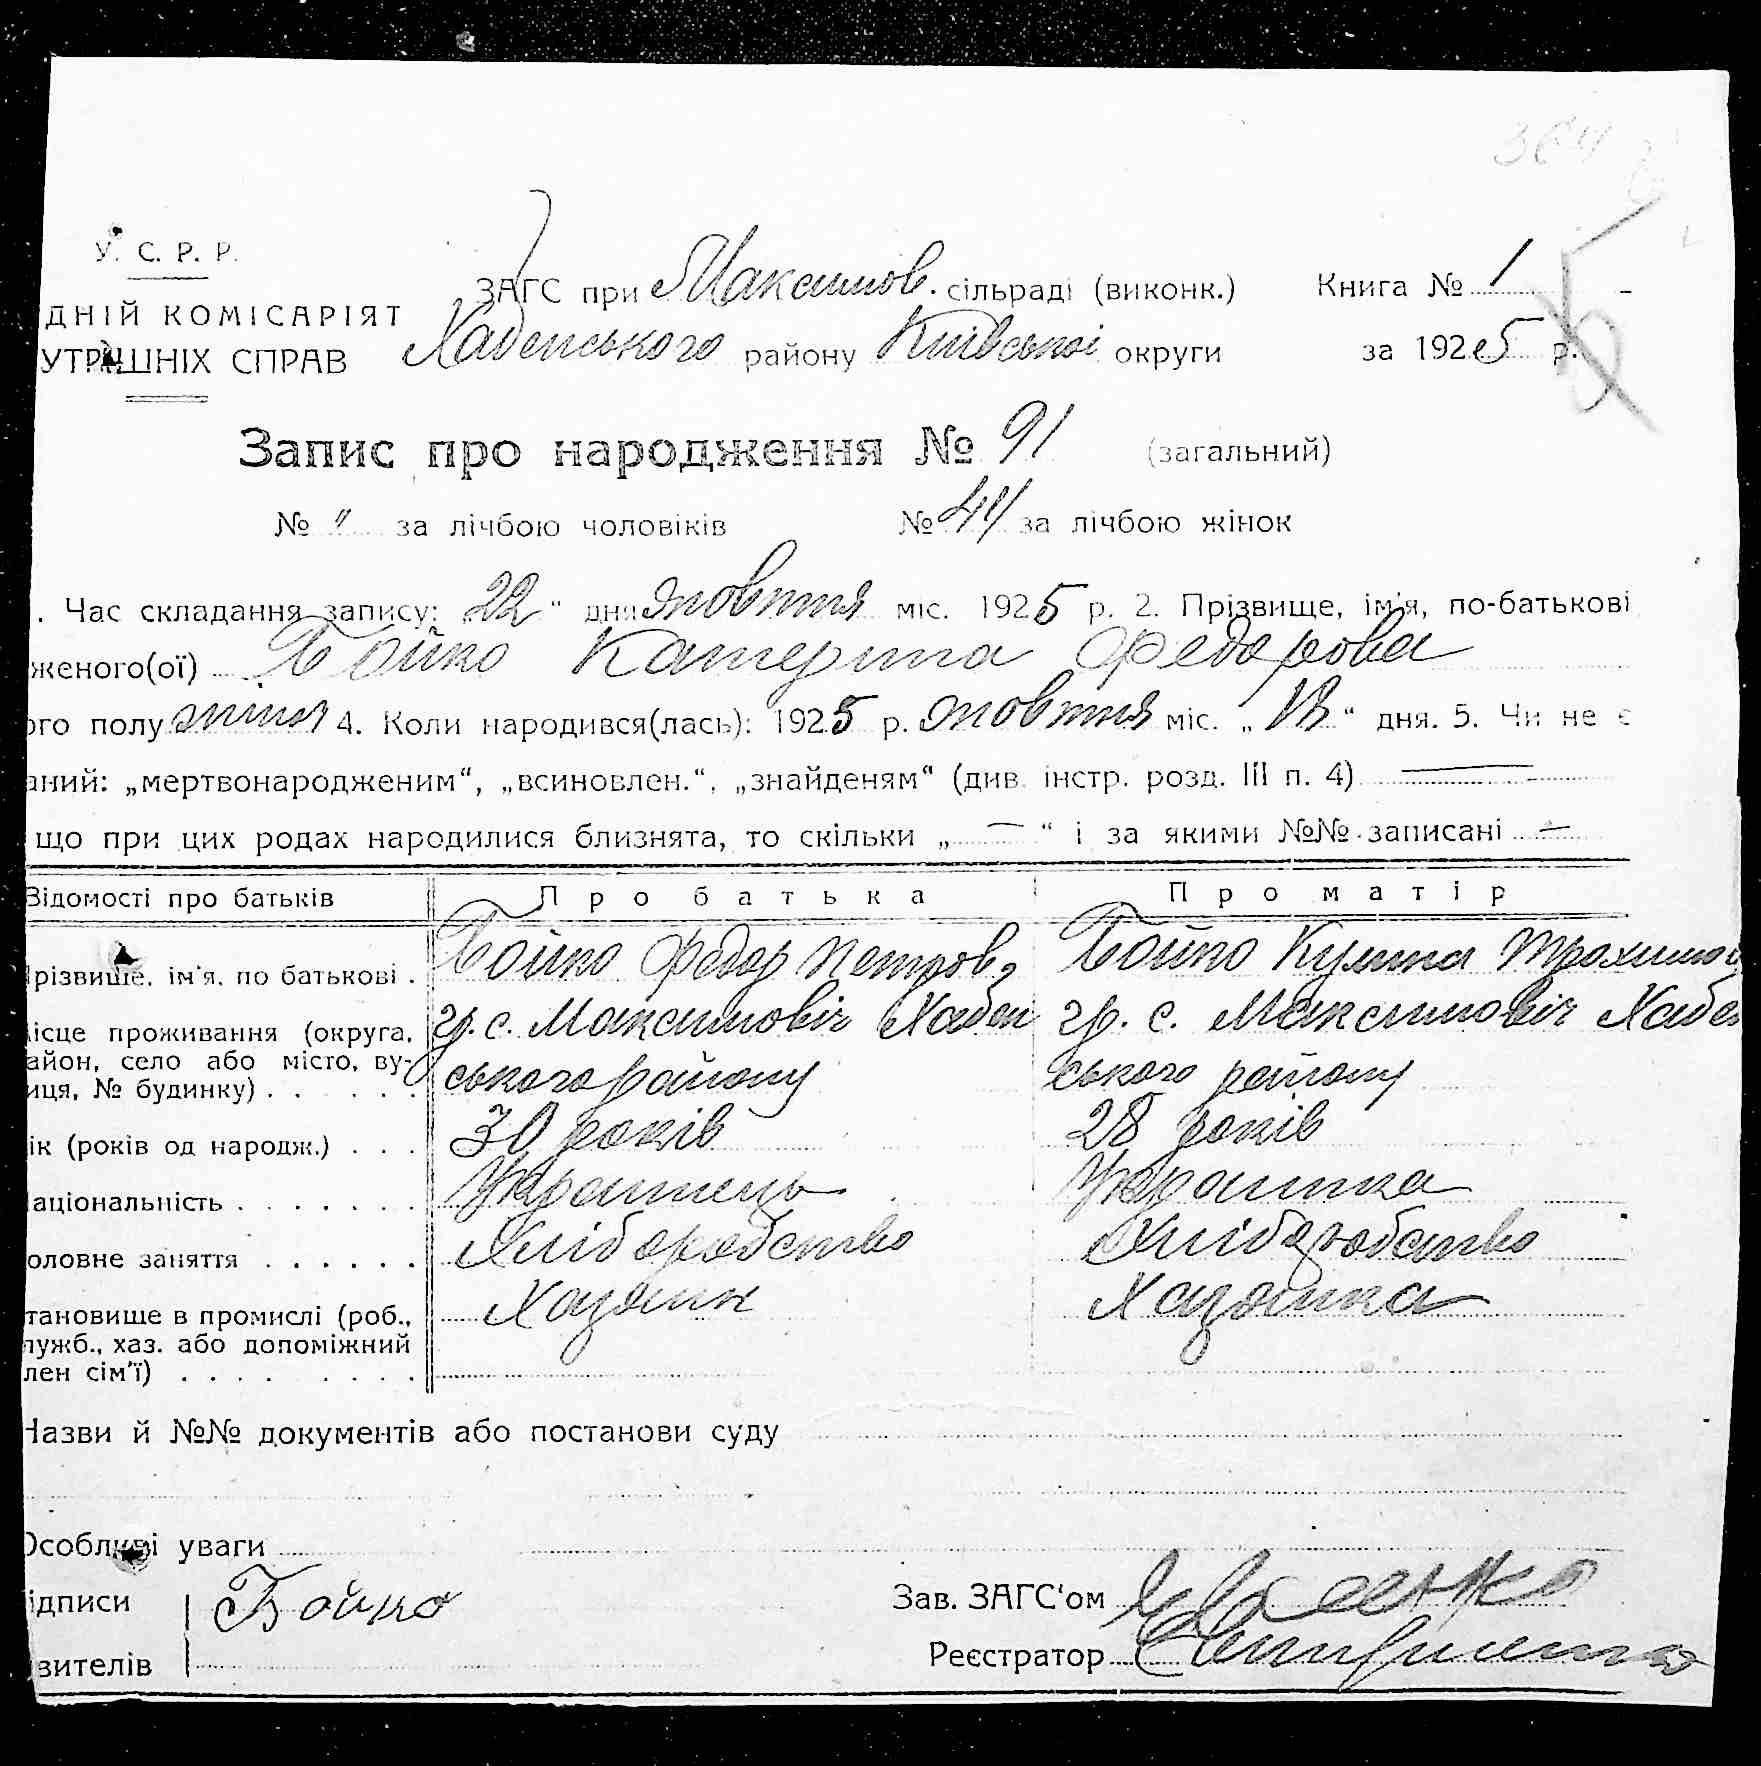 364
У. С. Р. Р.
ЗАГС при Максимов. сільраді (виконк.) Книга № 1
ДНІЙ КОМІСАРІЯТ
УТРІШНІХ СПРАВ Хабенського району Київської округи за 1925 р.
Запис про народження № 91 (загальний)
№ " за лічбою чоловіків № 44 за лічбою жінок
. Час складання запису: „22" дня жовтня міс. 1925 р. 2. Прізвище, ім'я, по-батькові
женого(ої) Бойко Катерина Федорова
ого полу жіноч 4. Коли народився(лась): 1925 р. жовтня міс. „ " дня. 5. Чи не є
аний: „мертвонародженим", „всиновлен.", „знайденям" (див. інстр. розд. III п. 4) —
що при цих родах народилися близнята, то скільки „ — " і за якими №№ записані —
Відомості про батьків Про батька Про матір
різвище, ім'я, по батькові . Бойко Федор Петров, Бойко Трохимо
ісце проживання (округа, гр. с. Максимовіч Хабен гр. с. Максимовіч Хабен
айон, село або місто, ву-
иця, № будинку) . . . . . . ського району ського району
ік (років од народж.) . . . 30 років 28 років
аціональність . . . . . . . Українець Українка
оловне заняття . . . . . . Хліборобство Хліборобство
тановище в промислі (роб., Хазяїн Хазяйка
лужб., хаз. або допоміжний
лен сім'ї) . . . . . . . . .
Назви й №№ документів або постанови суду
Особливі уваги
ідписи Бойко Зав. ЗАГС'ом
вителів Реєстратор